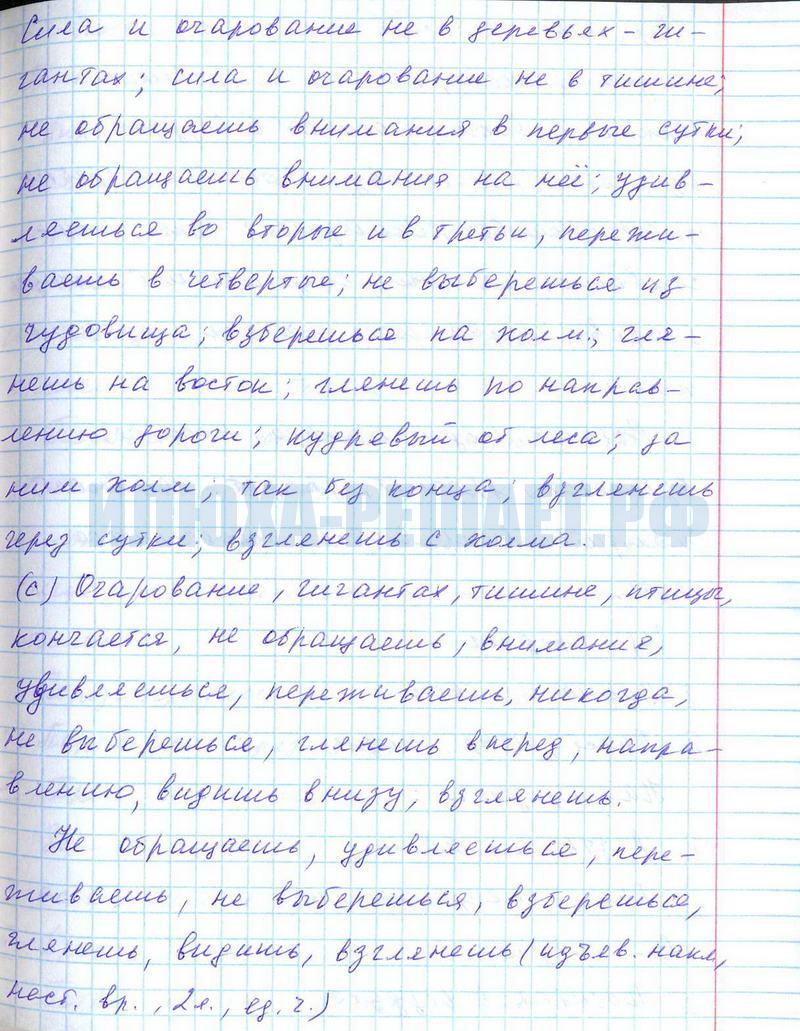 Сила и очарование не в деревьях-ги-
гантах; сила и очарование не в тишине;
не обращаешь внимания в первые сутки;
не обращаешь внимания на неё; удив-
ляешься во вторые и в третьи, пережи-
ваешь в четвертые; не выберешься из
чудовища; взберешься на холм; гля-
нешь на восток; глянешь по направ-
лению дороги; кудрявый от леса; за
ним холм; так без конца; взглянешь
через сутки; взглянешь с холма.
(с) Очарование, гигантах, тишине, птицы,
кончается, не обращаешь, внимания,
удивляешься, переживаешь, никогда,
не выберешься, глянешь вперед, напра-
влению, видишь внизу, взглянешь.
Не обращаешь, удивляешься, пере-
живаешь, не выберешься, взберешься,
глянешь, видишь, взглянешь (изъяв. накл,
наст. вр., 2л., ед. ч.)
ИЛЮХА-РЕШАЕТ.РФ